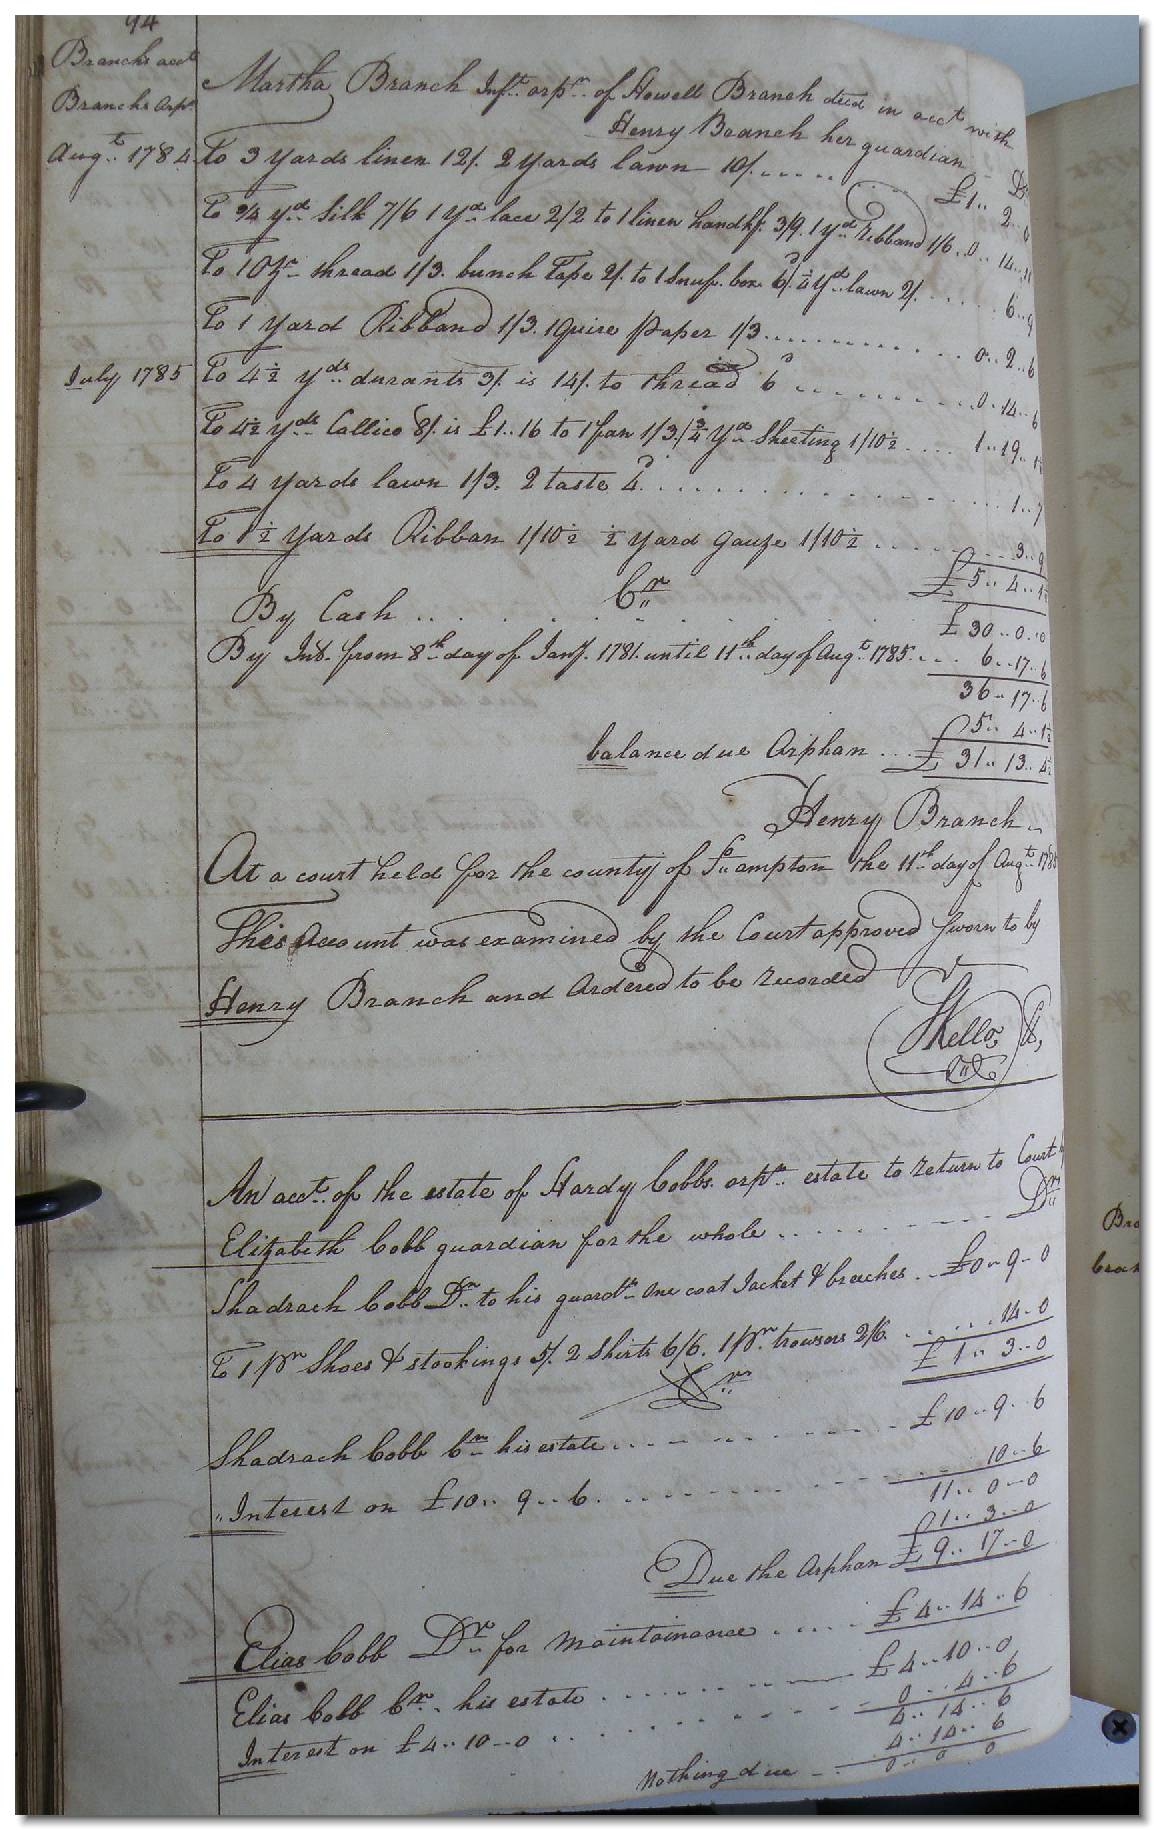 94
Branchs acct
Branchs Orps
Martha Branch Inft. orpn. of Howell Branch decd in acct with
Henry Branch her guardian Dr
Augt. 1784 To 3 yards linen 12/. 2 yards lawn 10/..... £1.. 2.. 0
To 3/4 yd. silk 7/6 1 yd lace 2/2 to 1 linen handkf. 3/9. 1 yd Ribband 1/6..0.. 14..11
To 1 Oz. thread 1/3. bunch Tape 2/. to 1 snuf. box 6d/. 1/4 yd. lawn 2/...... 6..9
To 1 yard Ribband 1/3. 1 quire paper 1/3........... 0.. 2.. 6
July 1785 To 4 1/2 yds. durants 3/. is 14/. to thread 6d ........0..14..6
To 4 1/2 yds. Callico 8/. is £1..16 to 1 fan 1/3./ 3/4 yd. Sheeting 1/10 1/2 .... 1..19..
To 4 yards lawn 1/3. 2 taste 4d. ........... 1..7
To 1 1/2 yards Ribban 1/10 1/2 1/2 yard gauze 1/10 1/2 ....... 3..9
£5.. 4.. 1 1/2
Cr
By Cash .. . . . . . £30..0..0
By Int. from 8th day of Jany. 1781. until 11th. day of Augt. 1785.... 6..17..6
36..17..6
5.. 4..1 1/2
balance due Orphan .... £ 31.. 13.. 4 1/2
Henry Branch
At a court held for the county of So.ampton the 11th day of Augt. 1785
This Account was examined by the Court approved sworn to by
Henry Branch and Ordered to be recorded
SKello
An acct. of the estate of Hardy Cobbs. orpn. estate to return to Court
Elizabeth Cobb guardian for the whole ....... Dr
Shadrach Cobb Dr. to his guardn. One coat Jacket & breaches .. £0..9..0
To 1 pr Shoes & stockings 5/. 2 Shirts 6/6. 1 pr. trousers 2/6. ...... 14..0
£1.. 3..0
Cr
Shadrach Cobb Cr his estate......... £10..9..6
Interest on £10.. 9..6. ......... 10..6
11.. 0..0
1.. 3..0
Due the Orphan £9.. 17..0
Elias Cobb Dr. for Maintainance ..... £4..14..6
Elias Cobb Cr. his estate ........ £4..10..0
Interest on £4..10..0 .. ...... 0.. 4..6
4..14..6
4..14..6
Nothing due 0..0..0
Bra